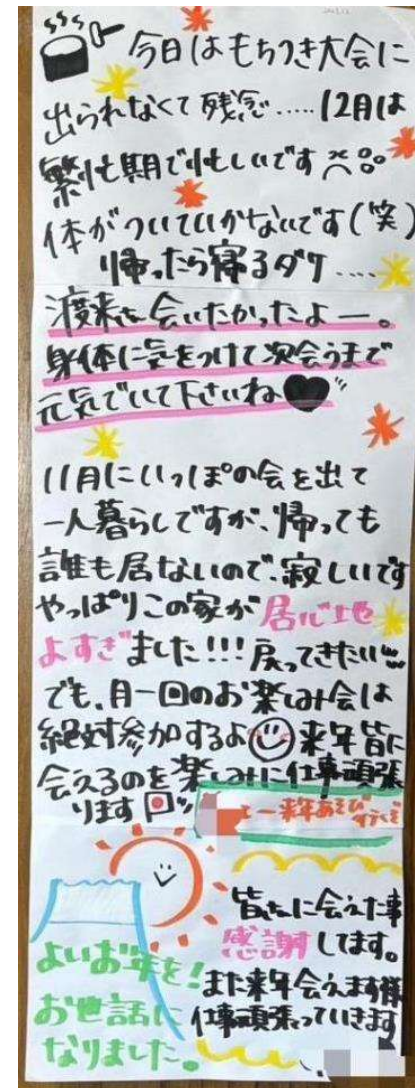 今日はもちつき大会に
出られなくて残念.....12月は
繁忙期で忙しいです
体がついていかないです(笑)
帰ったら寝るダケ....
渡来を会いたかったよー。
身体に気をつけて次会うまで
元気でいて下さいね
11月にいっぽの会を出て
一人暮らしですが、帰っても
誰も居ないので、寂しいです
やっぱりこの家が居心地
よすぎました!!!戻ってきたい
でも、月一回のお楽しみ会は
絶対参加するよ 来年皆に
会えるのを楽しみに仕事頑張
ります
ー来年あそび行くぞ
皆さんに会えた事
感謝してます。
また来年会えます様
仕事頑張っていきます
よいお年を!
お世話に
なりました。